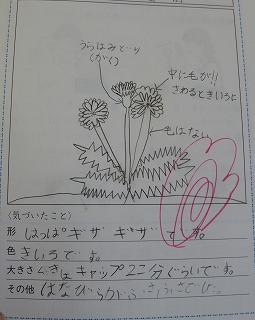 うらはみどり
(がく)
中に毛があり
さわるときいろに
毛はない
〈気づいたこと〉
形 はっぱギザギザです。
色 きいろです。
大きさ くきはキャップ2こ分ぐらいです。
その他 はなびらが